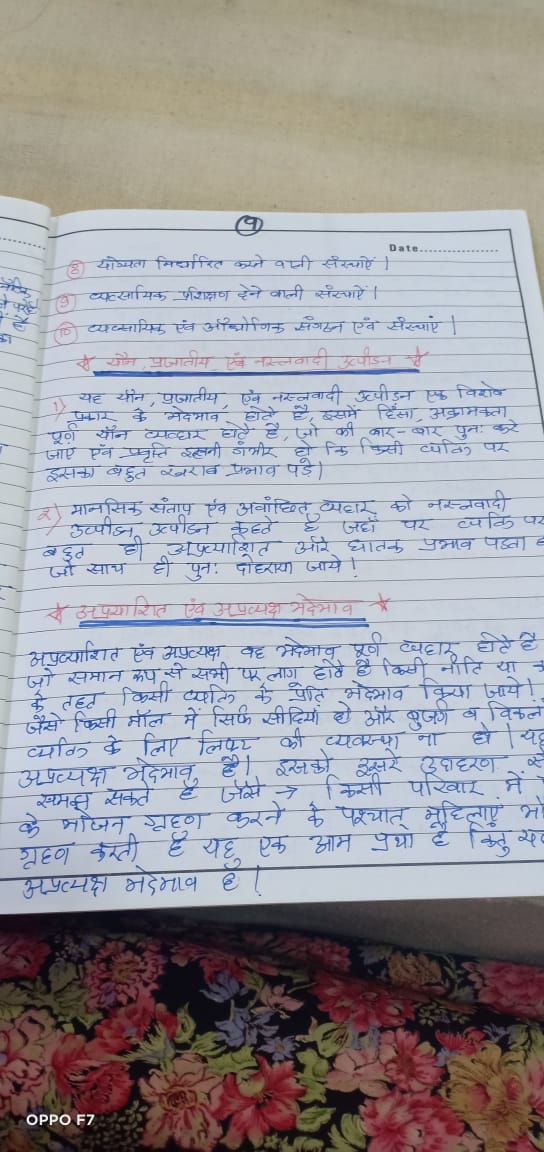 9
Date
8 योग्यता निर्धारित करने वाली संस्थाऐं |
9 व्यवसायिक प्रशिक्षण देने वाली संस्थाऐं |
10 व्यवसायिक एवं औद्योगिक संगठन एवं संस्थाएं |
यौन, प्रजातीय एवं नस्लवादी उत्पीडन
1) यह यौन, प्रजातीय, एवं नस्लवादी उत्पीडन एक विशेष
प्रकार के भेदभाव होते हैं, इसमें हिंसा, अक्रामकता
पूर्ण यौन व्यवहार होते है, जो की बार-बार पुनः करे
जाए एवं प्रवृति इतनी गंभीर हो कि किसी व्यक्ति पर
इसका बहुत खराब प्रभाव पड़े |
2) मानसिक संताप एंव अवांछित व्यहार को नस्लवादी
उत्पीडन उत्पीडन कहते है जहाँ पर व्यक्ति पर
बहुत ही अप्रत्याशित और घातक प्रभाव पडता
जो साथ ही पुनः दोहराया जाये |
अप्रत्याशित एंव अप्रत्यक्ष भेदभाव
अप्रत्याशित एंव अप्रत्यक्ष वह भेदभाव पूर्ण व्यहार होते है
जो समान रूप से सभी पर लागू होते है किसी नीति या
के तहत किसी व्यक्ति के प्रति भेदभाव किया जाये |
जैसे किसी मॉल में सिर्फ सीढियां हो और बुजर्ग व
व्यक्ति के लिए लिफ्ट की व्यवस्था ना हो |
अप्रत्यक्ष भेदभाव है | इसको दूसरे उदाहरण
समझ सकते है जैसे → किसी परिवार में
के भोजन ग्रहण करने के पश्चात् महिलाएं
ग्रहण करती है यह एक आम प्रथा है किंतु
अप्रत्यक्ष भेदभाव है |
OPPO F7